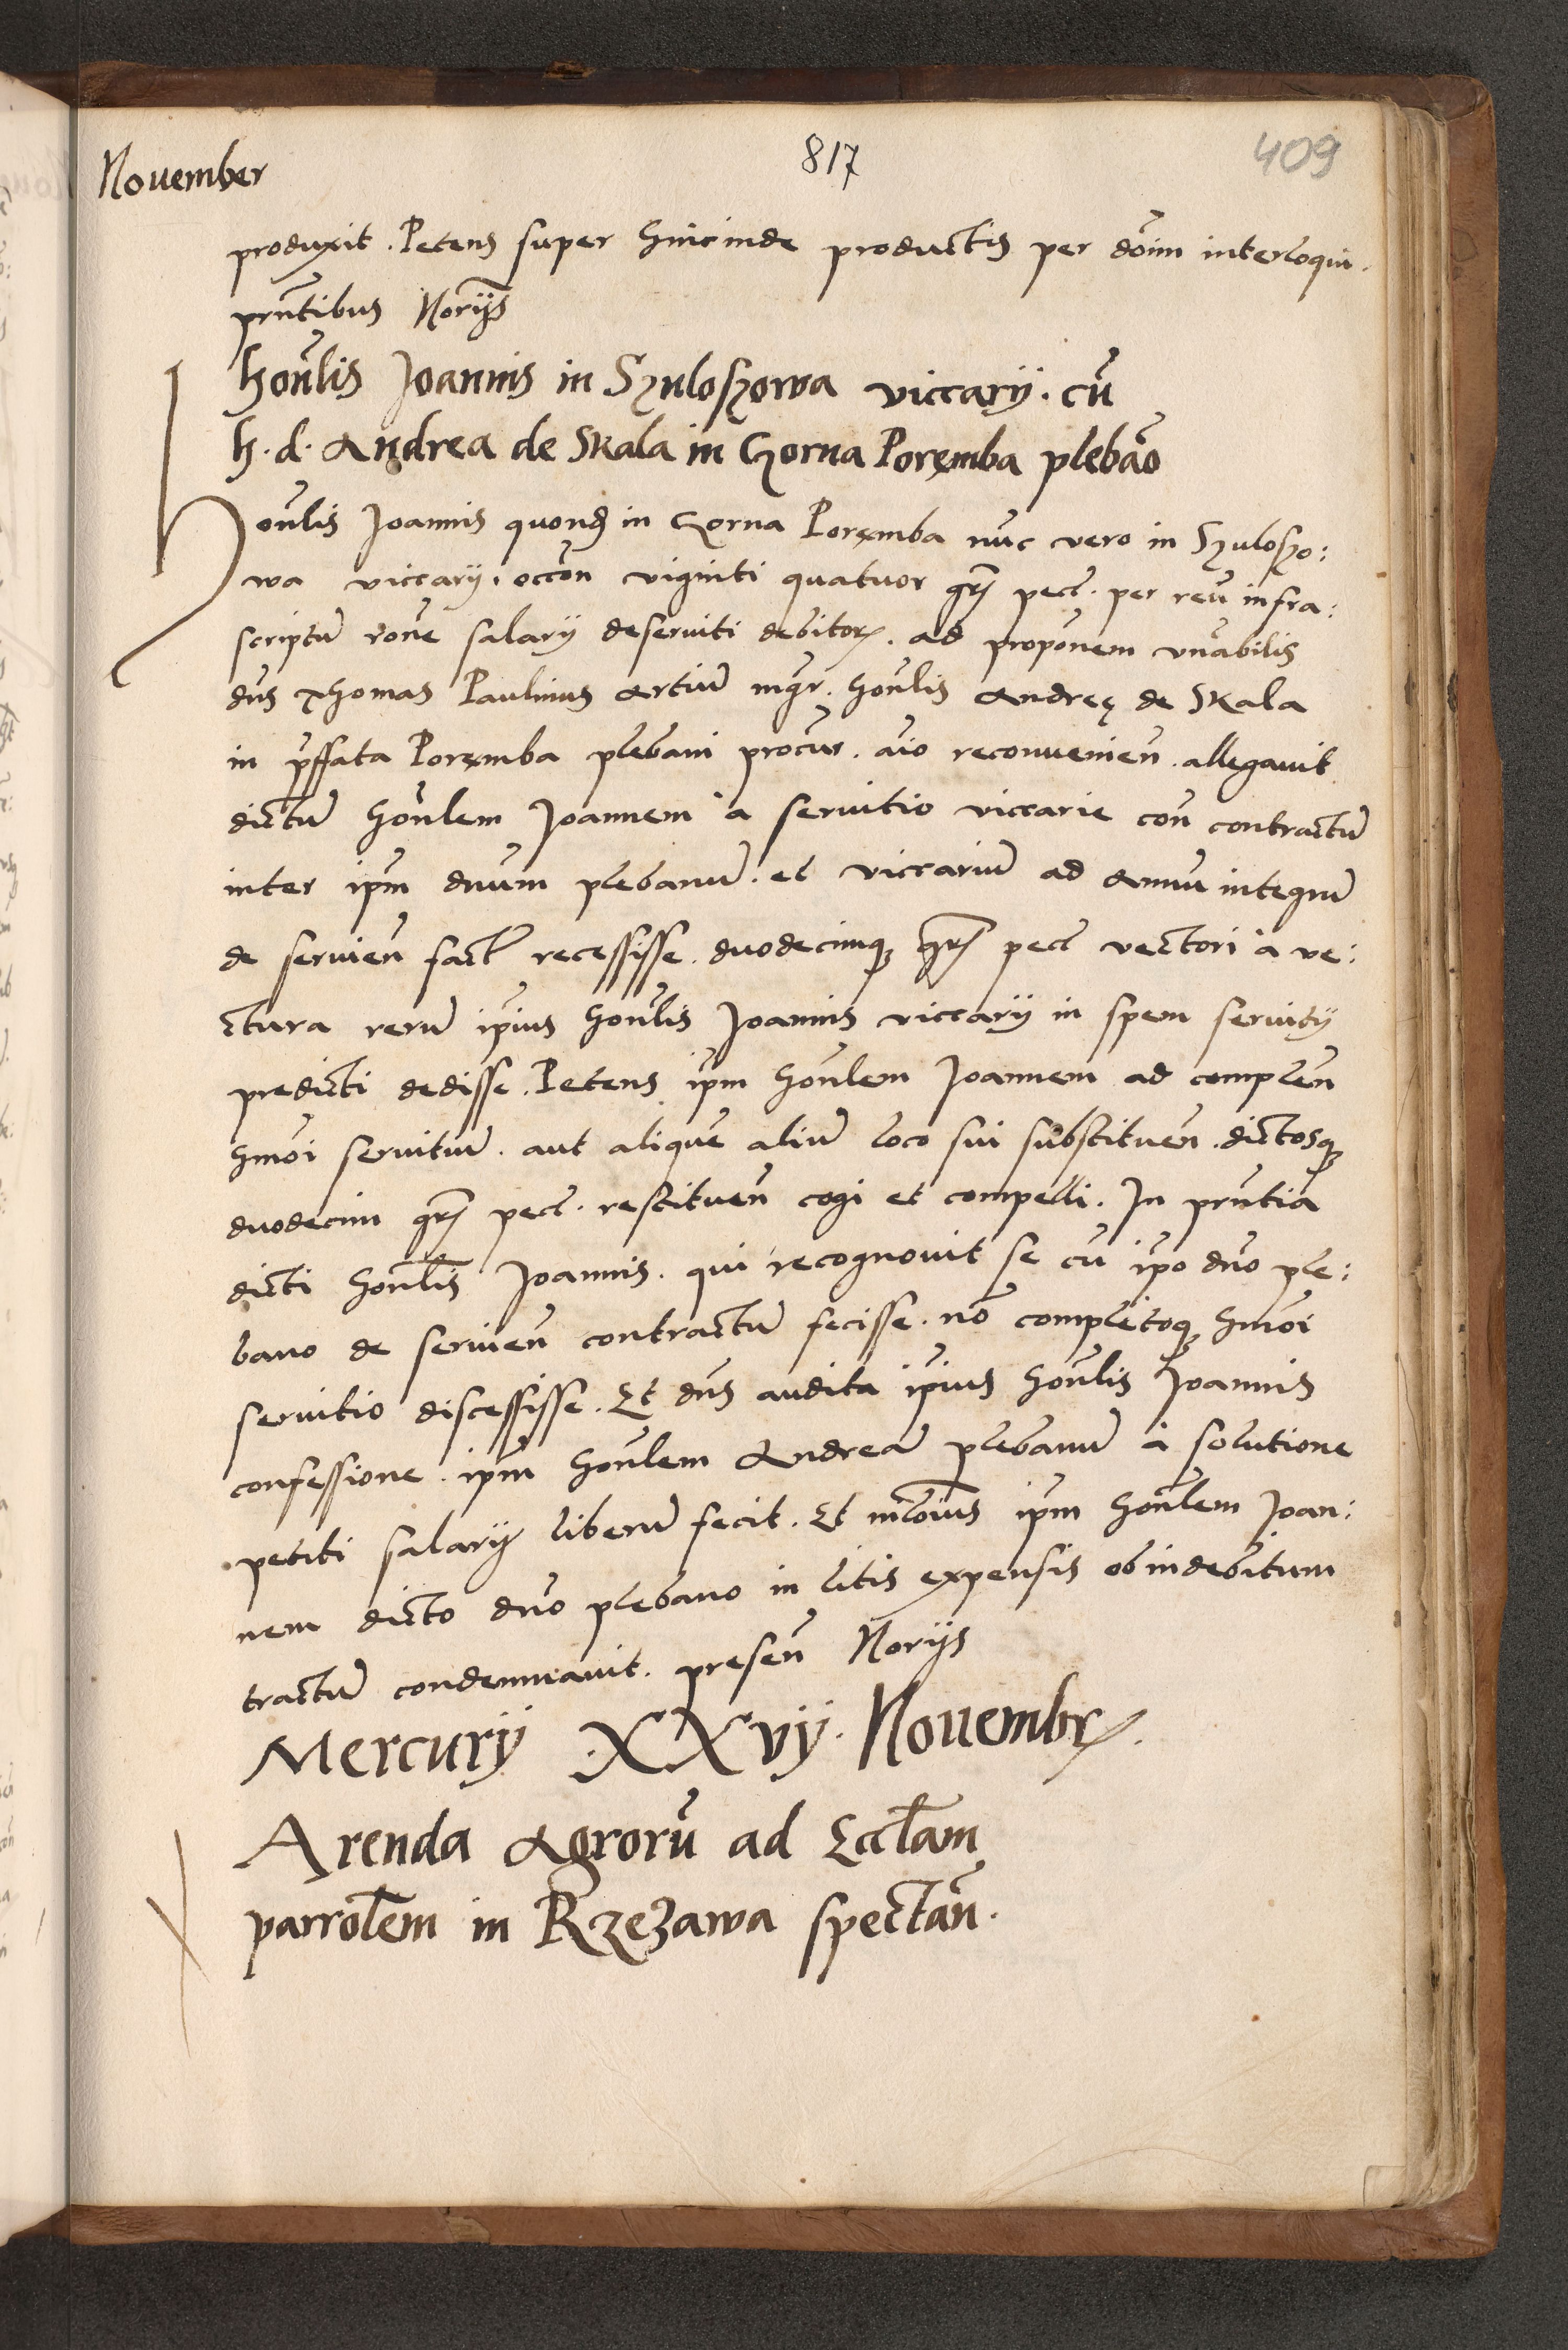 November
817
409
produxit. Petens super hincinde productis per dōim interloqui.
pn̄tibus Norijs
honl̄is Joannis in Szuloszowa viccarÿ. cū
h. d. Andrea de Skala in Gorna Poręmba plebāo
Honl̄is Joannis quond in Gorna Poręmba nūc vero in Szuloszo:
wa viccarÿ. occōn viginti quatuor gr pec. per reū infra:
scriptū rōne salarÿ deserviti debitor. ad propōnem vn̄abilis
dn̄s Thomas Paulinus Artiū mgr. honl̄is Andreę de Skala
in p̄ffata Poręmba plebani procur. aīo reconvenien̄. allegavit
dictū honl̄em Joannem à servitio viccarie con̄ contractū
inter ipm̄ dn̄um plebanū. et viccariū ad Annū integrū
de servien̄ fact recessisse. duodecimq gr pec vectori à ve:
ctura rerū ipīus honl̄is Joannis viccarÿ in spem servitÿ
predicti dedisse. Petens ipm̄ honl̄em Joannem ad complen̄
hmōi servitiū. aut aliquē aliū loco sui substituen̄. dictosq
duodecim gr pec. restituen̄ cogi et compelli. In pn̄tia
dicti honl̄is Joannis. qui recognovit se cū ipō dn̄o ple:
bano de servien̄ contractū fecisse. nō completoq hmōi
servitio discessisse. Et dn̄s audita ipīus honl̄is Joannis
confessione. ipm̄ honl̄em Andreā plebanū à solutione
petiti salarÿ liberū fecit. Et ipm̄ honl̄em Joan:
nem dicto dn̄o plebano in litis expensis ob indebitum
tractū condemnavit. presen̄ Norijs
Mercurÿ XXvÿ. Novembr.
Arenda Agrorū ad Eccl̄am
parrol̄em in Rzezawa spectan̄.